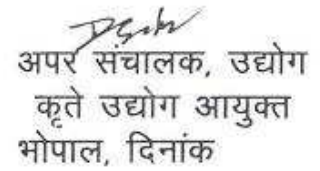 अपर संचालक, उद्योग
कृते उद्योग आयुक्त
भोपाल, दिनांक